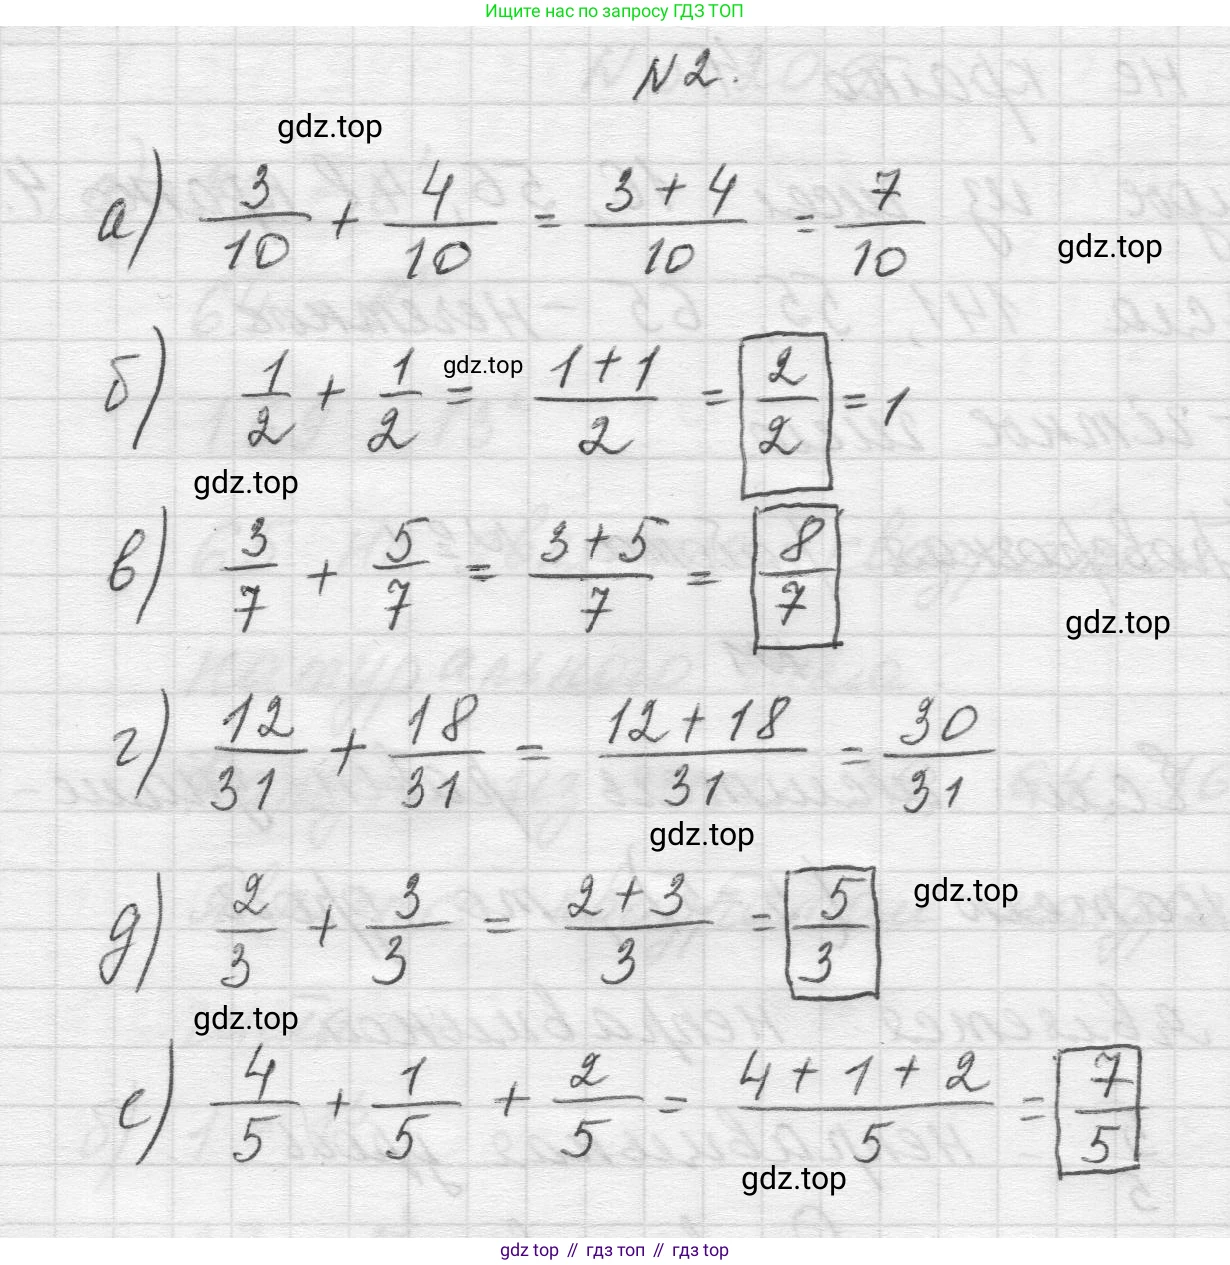 Ищите нас по запросу ГДЗ ТОП
№2.
gdz.top
а) 3/10 + 4/10 = 3+4/10 = 7/10
gdz.top
б) 1/2 + 1/2 = 1+1/2 = 2/2 = 1
gdz.top
gdz.top
в) 3/7 + 5/7 = 3+5/7 = 8/7
gdz.top
г) 12/31 + 18/31 = 12+18/31 = 30/31
gdz.top
д) 2/3 + 3/3 = 2+3/3 = 5/3
gdz.top
gdz.top
е) 4/5 + 1/5 + 2/5 = 4+1+2/5 = 7/5
gdz.top
gdz top // гдз топ // gdz top